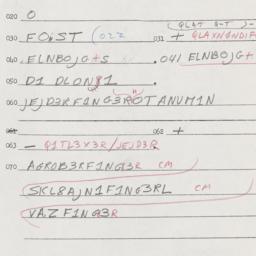 (QLAT A-T )-
020 O
030 FO.ST (022 031 + QLAXNGNDIF
040 .ELNBOJG+S . 041 ELNBOJG+
050 D1 DLONJ1 .
060 JEJD3RF1NG3ROTANUM1N
061 062 +
063 - Q1TL3X3R/JEJD3R
070 AGROB3RF1NG3R CM
SKL8AJN1F1NG3RL CM
VAZF1NG3R